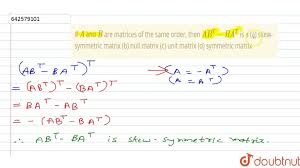 642579101
If A and B are matrices of the same order, then ABᵀ − BAᵀ is a (a) skew-
symmetric matrix (b) null matrix (c) unit matrix (d) symmetric matrix
(ABᵀ − BAᵀ)ᵀ
= (ABᵀ)ᵀ − (BAᵀ)ᵀ
(A = −Aᵀ)
(A = Aᵀ)
= BAᵀ − ABᵀ
= − (ABᵀ − BAᵀ)
∴ ABᵀ − BAᵀ is skew-symmetric matrix.
doubtnut